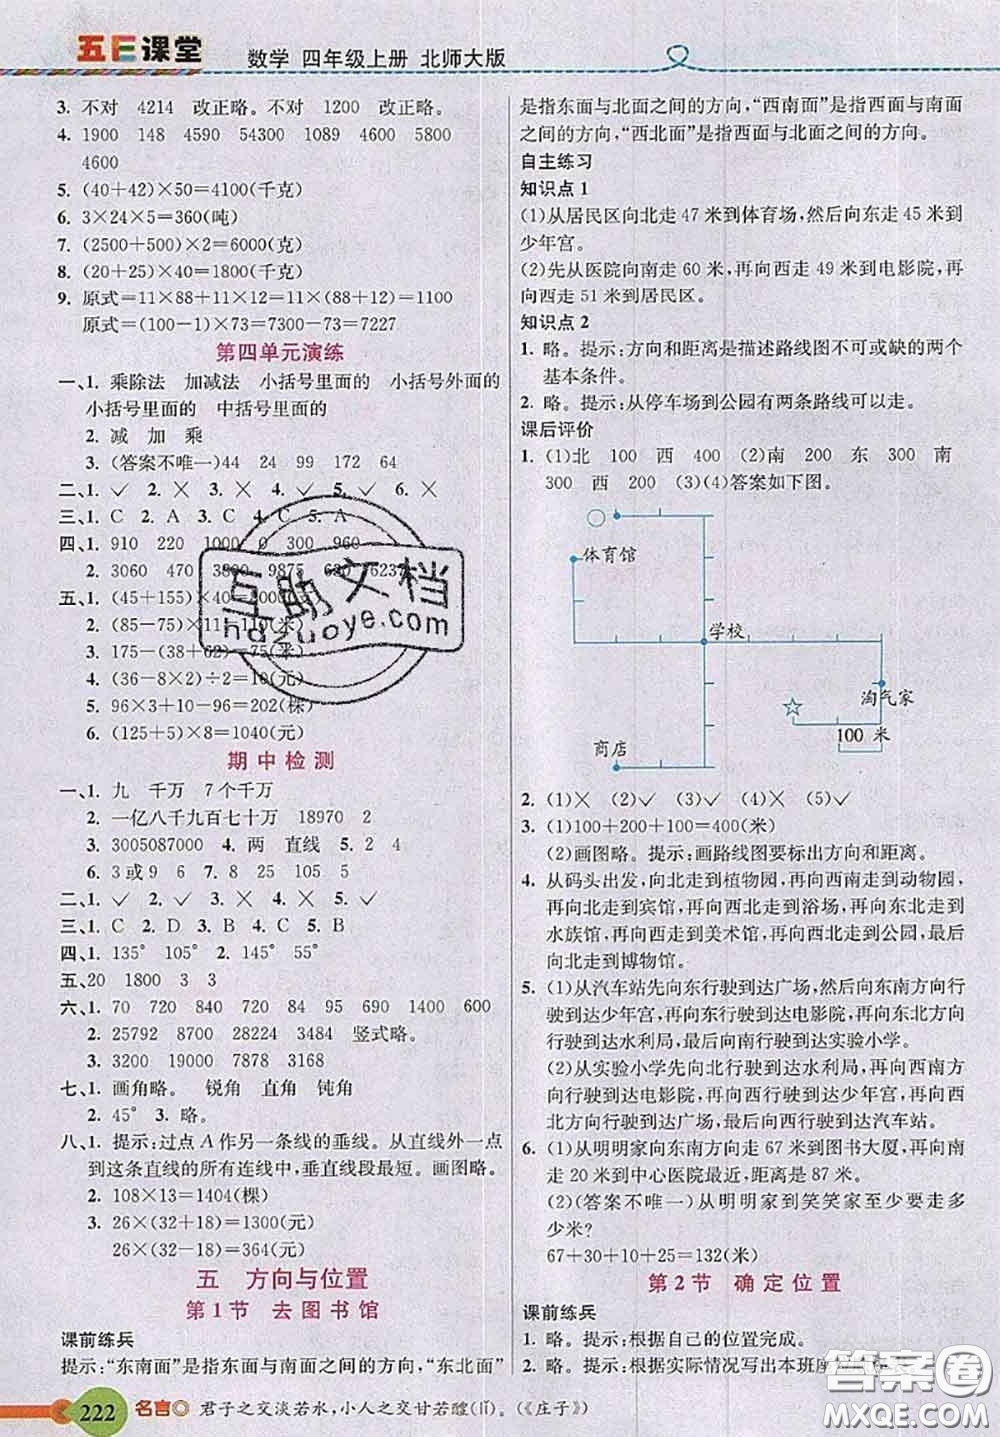 五E课堂
数学 四年级上册 北师大版
3. 不对 4214 改正略。不对 1200 改正略。
4. 1900 148 4590 54300 1089 4600 5800
4600
5. (40+42)×50=4100(千克)
6. 3×24×5=360(吨)
7. (2500+500)×2=6000(克)
8. (20+25)×40=1800(千克)
9. 原式=11×88+11×12=11×(88+12)=1100
原式=(100-1)×73=7300-73=7227
第四单元演练
一、1. 乘除法 加减法 小括号里面的 小括号外面的
小括号里面的 中括号里面的
2. 减 加 乘
3. (答案不唯一)44 24 99 172 64
二、1. ✓ 2. × 3. × 4. ✓ 5. ✓ 6. ×
三、1. C 2. A 3. C 4. C 5. A
四、1. 910 220 1000 0 300 960
2. 3060 470 3800 9875 620 623
五、1. (45+155)×40=8000(元)
2. (85-75)×11=110(米)
3. 175-(38+62)=75(元)
4. (36-8×2)÷2=10(元)
5. 96×3+10-96=202(棵)
6. (125+5)×8=1040(元)
期中检测
一、1. 九 千万 7个千万
2. 一亿八千九百七十万 18970 2
3. 3005087000 4. 两 直线 5. 2 4
6. 3或9 6 8 7. < > < =
二、1. ✓ 2. ✓ 3. × 4. × 5. ✓
三、1. C 2. D 3. B 4. B 5. C
四、1. 135° 105° 2. 145° 55°
五、20 1800 3 3
六、1. 70 720 840 84 95 690 1400 600
2. 25792 8700 28224 3484 竖式略。
3. 3200 19000 7878 3168
七、1. 画角略。 锐角 直角 钝角
2. 45° 3. 略。
八、1. 提示:过点A作另一条线的垂线。从直线外一点
到这条直线的所有连线中,垂直线段最短。画图略。
2. 108×13=1404(棵)
3. 26×(32+18)=1300(元)
26×(32-18)=364(元)
五 方向与位置
第1节 去图书馆
课前练兵
提示:“东南面”是指东面与南面之间的方向,“东北面”
是指东面与北面之间的方向,“西南面”是指西面与南面
之间的方向,“西北面”是指西面与北面之间的方向。
自主练习
知识点1
(1)从居民区向北走47米到体育场,然后向东走45米到
少年宫。
(2)先从医院向南走60米,再向西走49米到电影院,再
向西走51米到居民区。
知识点2
1. 略。提示:方向和距离是描述路线图不可或缺的两个
基本条件。
2. 略。提示:从停车场到公园有两条路线可以走。
课后评价
1. (1)北 100 西 400 (2)南 200 东 300 南
300 西 200 (3)(4)答案如下图。
体育馆
学校
淘气家
商店
100 米
2. (1)× (2)✓ (3)✓ (4)× (5)✓
3. (1)100+200+100=400(米)
(2)画图略。提示:画路线图要标出方向和距离。
4. 从码头出发,向北走到植物园,再向西南走到动物园,
再向北走到宾馆,再向西北走到浴场,再向北走到
水族馆,再向西走到美术馆,再向北走到公园,最后
向北走到博物馆。
5. (1)从汽车站先向东行驶到达广场,然后向东南方向
行驶到达少年宫,再向东行驶到达电影院,再向东北方
向行驶到达水利局,最后向南行驶到达实验小学。
(2)从实验小学先向北行驶到达水利局,再向西南
方向行驶到达电影院,再向西行驶到达少年宫,再向西
北方向行驶到达广场,最后向西行驶到达汽车站。
6. (1)从明明家向东南方向走67米到图书大厦,再向南
走20米到中心医院最近,距离是87米。
(2)(答案不唯一)从明明家到笑笑家至少要走多
少米?
67+30+10+25=132(米)
第2节 确定位置
课前练兵
1. 略。提示:根据自己的位置完成。
2. 略。提示:根据实际情况写出本班座
222 名言 君子之交淡若水,小人之交甘若醴(lǐ)。(《庄子》)
互助文档
hdzuoye.com
答案圈